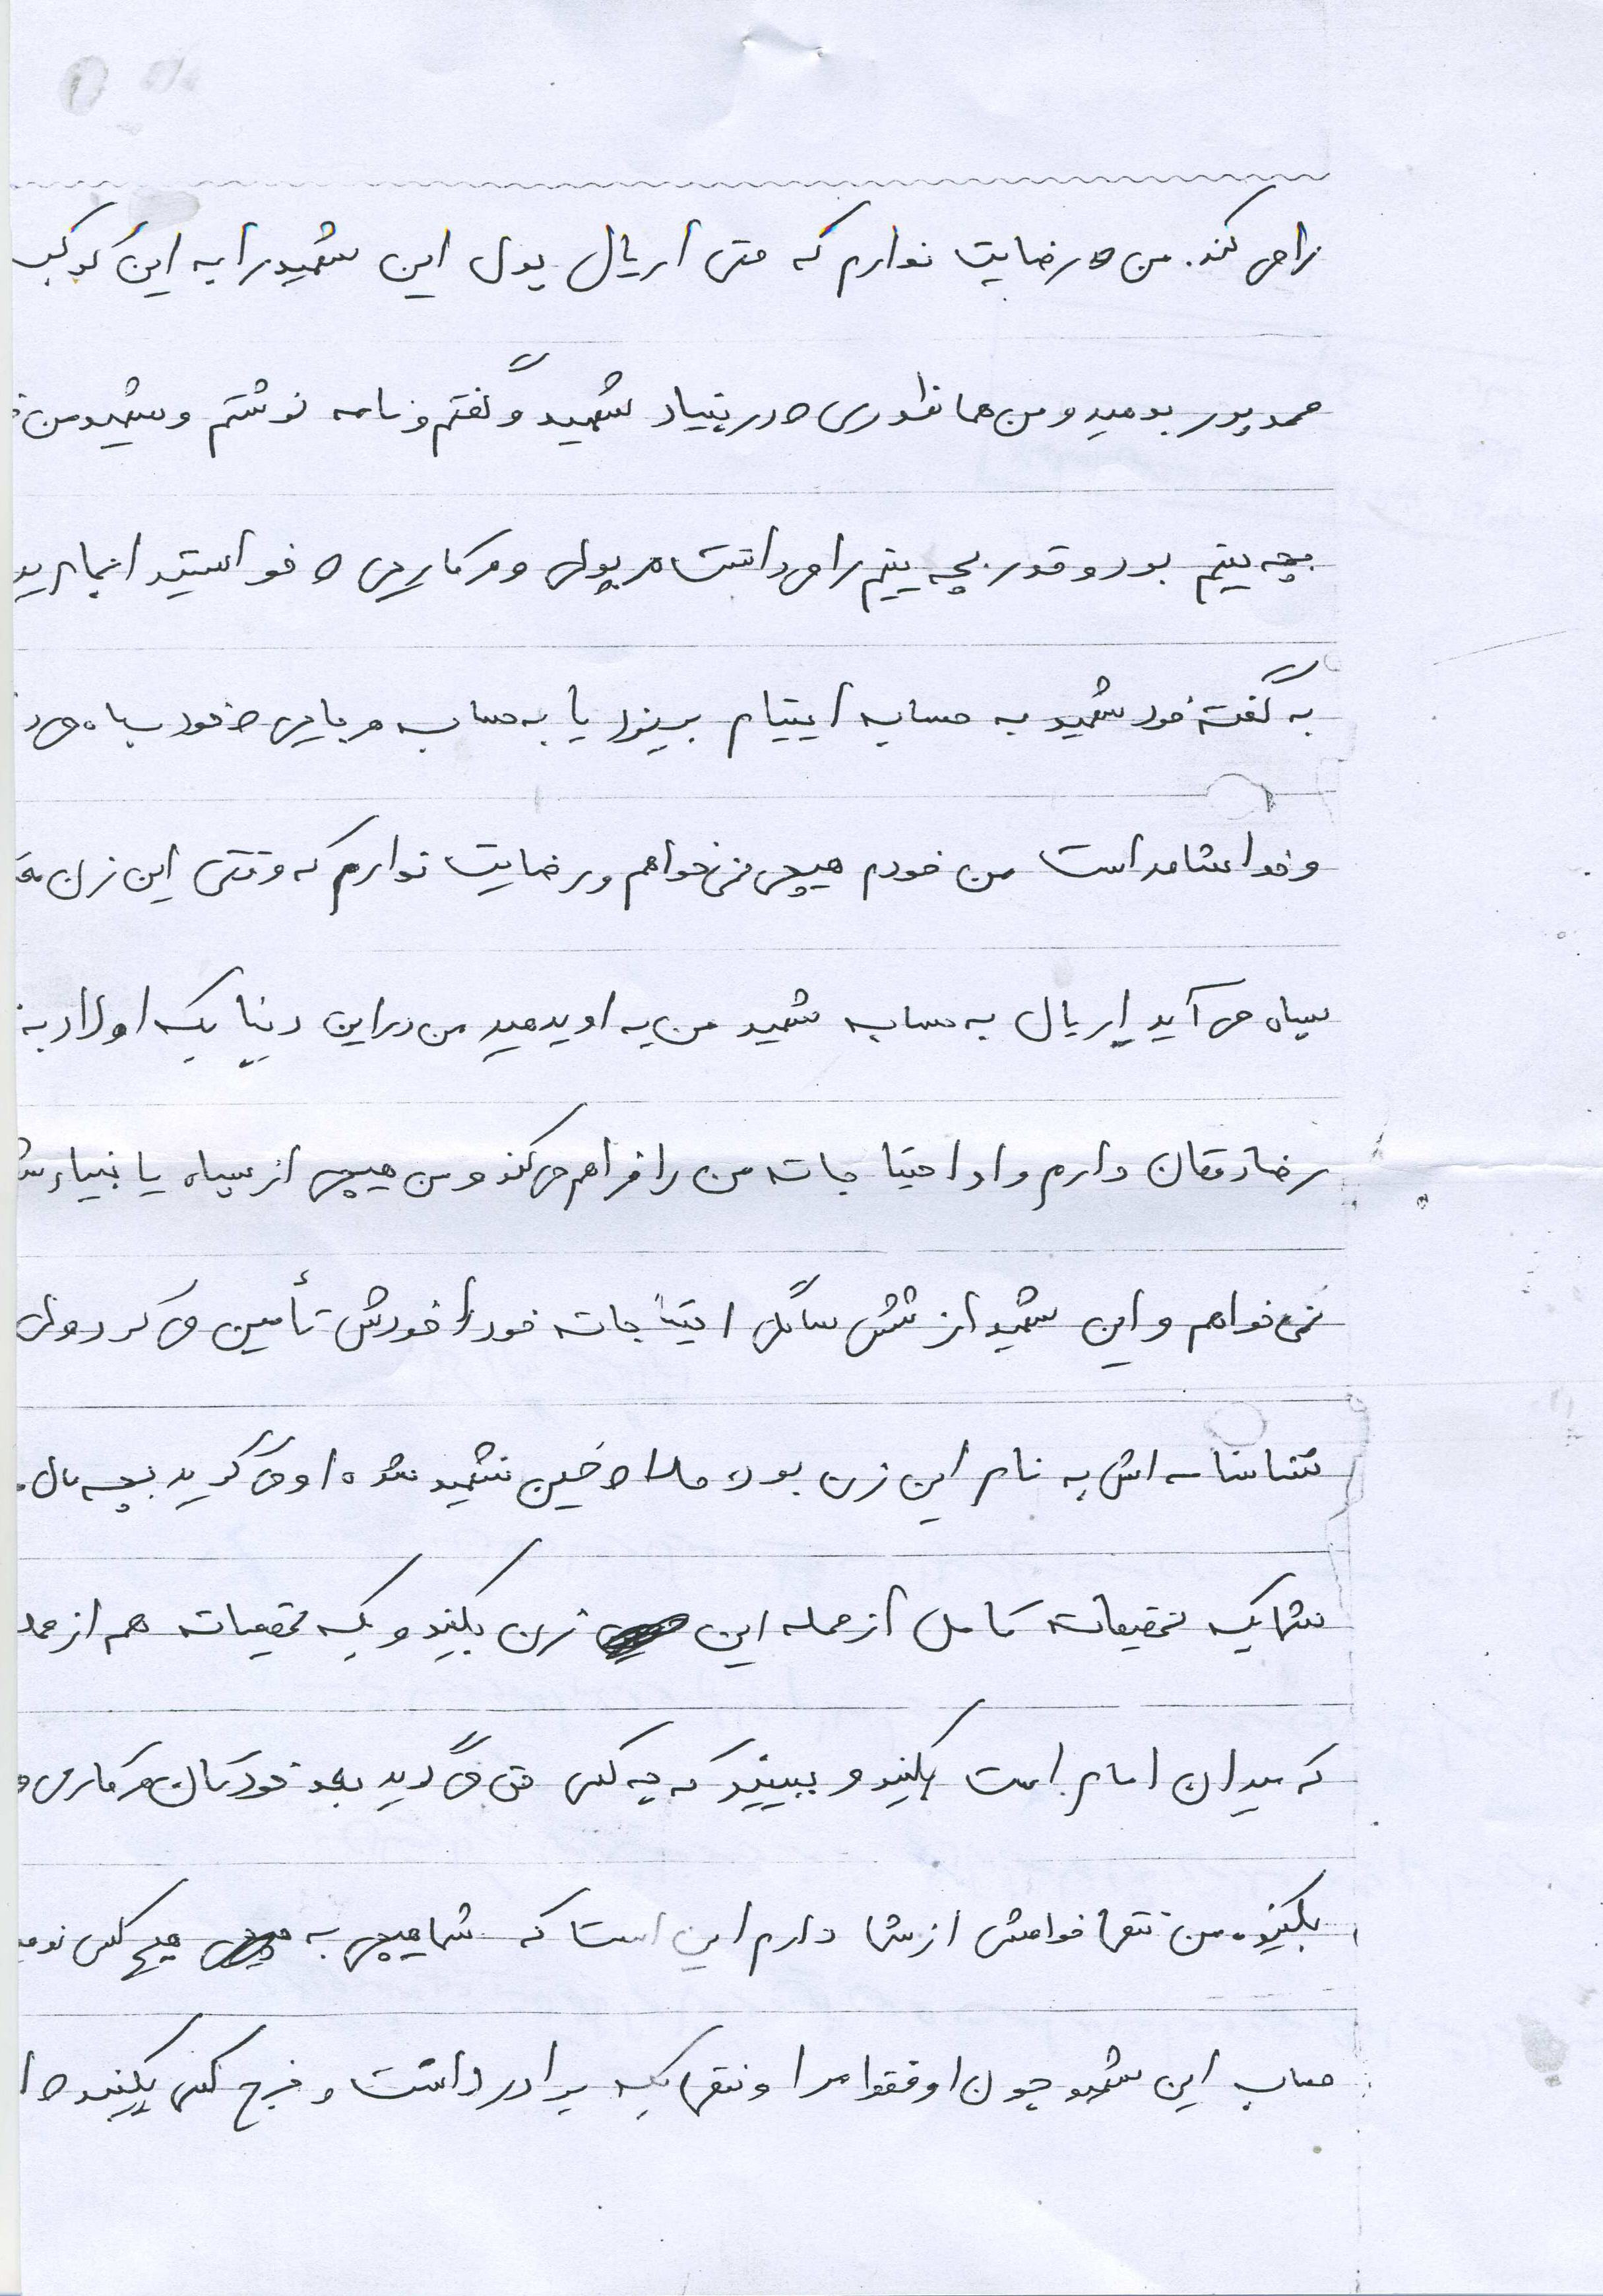 را می کند. من رضایت ندارم که حتی ۱ ریال پول این شهید را به این کوکب
محمدپور بدهید و من همانطوری که در بنیاد شهید گفتم و نامه نوشتم و شهید من
بچه یتیم بود و قدر بچه یتیم را می دانست هر پولی و هر کاری می خواستید انجام بد
به گفته خود شهید به حساب ایتیام بریزد یا به حساب هر جایی که خود سپاه می د
و خدا شاهد است من خودم هیچی نمی خواهم و رضایت ندارم که وقتی این زن
سپاه می آید ۱ ریال به حساب شهید من به او بدهید من در این دنیا یک اولاد به
رضا دهقان دارم و او احتیاجات من را فراهم می کند و من هیچی از سپاه یا بنیاد ش
نمی خواهم و این شهید از شش سالگی احتیاجات خود را خودش تأمین می کرد ولی
شناسنامه اش به نام این زن بود حالا که حسین شهید شده او می گوید بچه مال
شما یک تحقیقات کامل از محله این زن بکنید و یک تحقیقات هم از محله
که میدان امام است بکنید و ببینید که چه کسی حق می گوید بعد خودتان هر کاری
بکنید. من تنها خواهش از شما دارم این است که شما هیچی به هیچ کس ندهید
حساب این شهید چون او فقط مرا و تنها یک برادر داشت و خرج کس بکنید که ا